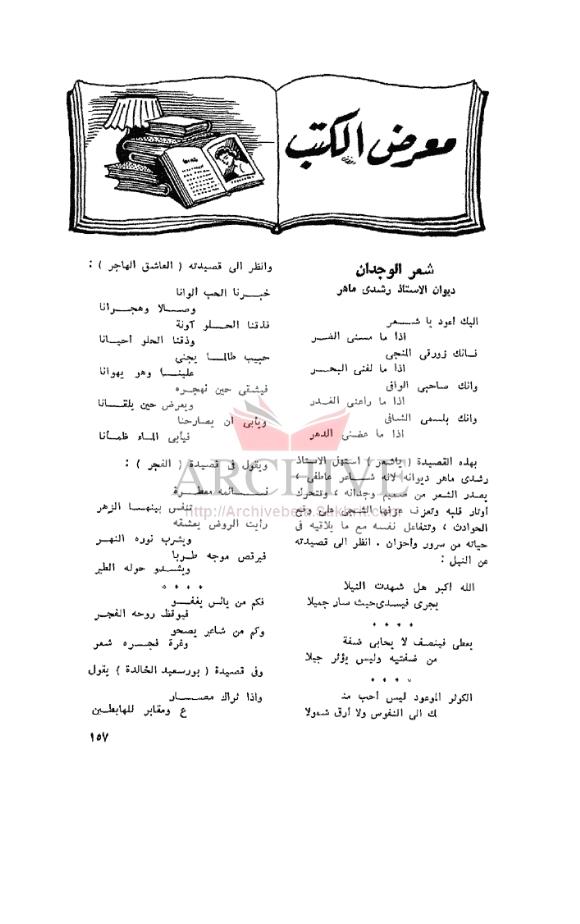 معرض الكتب
شعر الوجدان
ديوان الاستاذ رشدى ماهر
اليك اعود يا شـــعر
اذا ما مسنى الضـر
فـانك زورقى المنجى
اذا ما لفنى البحـر
وانك صاحبى الوافى
اذا ما راعنى الغدر
وانك بلسمى الشافى
اذا ما عضنى الدهر
بهذه القصيدة ( ياشعر ) استهل الاستاذ
رشدى ماهر ديوانه لانه شـاعر عاطفى ،
يصدر الشعر من صميم وجدانه ، وتتحرك
أوتار قلبه وتعزف عزفها الشجى على وقع
الحوادث ، وتتفاعل نفسه مع ما يلاقيه فى
حياته من سرور وأحزان . انظر الى قصيدته
عن النيل :
الله اكبر هل شهدت النيلا
يجرى فيسدى حيث سار جميلا
* * * *
يعطى فينصف لا يحابى ضفة
من ضفتيه وليس يؤثر جيلا
* * * *
الكوثر الموعود ليس أحب منـ
ـك الى النفوس ولا أرق شمولا
وانظر الى قصيدته ( العاشق الهاجر ) :
خبـرنا الحب الوانا
وصـــالا وهجـرانا
فذقنا الحـــلو آونة
وذقنا الحلو أحيـانا
حبيب طالمـــا يجنى
علينــــا وهو يهوانا
فيشقى حين نهجـره
ويعرض حين يلقـــانا
ويأبى أن يصارحنا
فيأبى المـاء ظمـأنا
ويقول فى قصيدة ( الفجر ) :
نســـائمه معطـرة
تنفس بينهــا الزهر
رأيت الروض يعشقه
ويشرب نوره النهـر
فيرقص موجه طـربا
ويشـــدو حوله الطير
* * * *
فكم من يائس يغفـــو
فيوقظ روحه الفجـر
وكم من شاعر يصحو
وغرة فجـــره شعر
وفى قصيدة ( بورسعيد الخالدة ) يقول
واذا ثراك مصـــــار
ع ومقابر للهابطـين
١٥٧
ARCHIVE